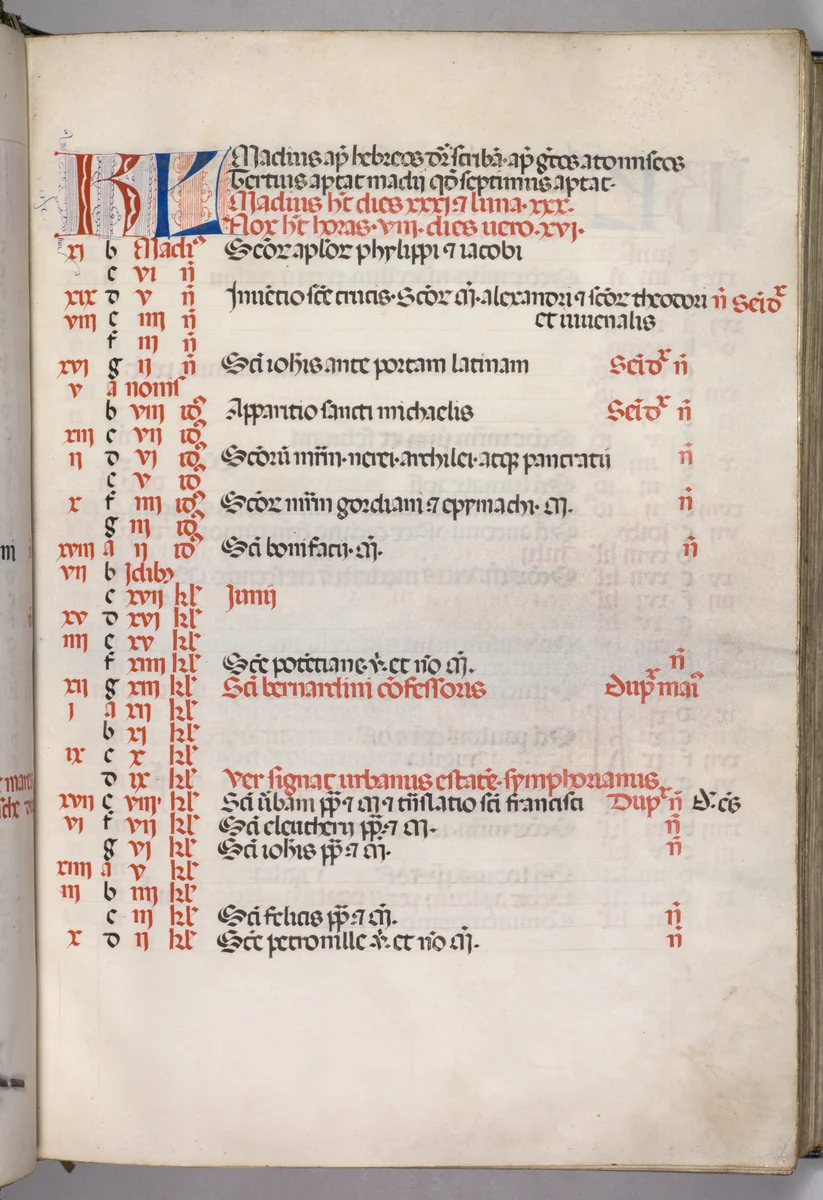 KL Madius ap̄ hebreos dr̄ scribā· ap̄ gͭcos atonniscos
Tertius aptat madij qō septimus aptat·
Madius ht̄ dies xxxj ⁊ luna·xxx·
Nox ht̄ horas·viii·dies uero·xvi·
xi b Madiꝰ Scōr aplōr phylippi ⁊ iacobi
c vi n̄
xix d v n̄ Inuētio scē crucis· Scōr m̄·alexandri ⁊ scōr theodori n̄ Semidᵡ
viii e iiii n̄ et iuuenalis
f iii n̄
xvi g ii n̄ Scī ioħis ante portam latinam Semidᵡ n̄
v a nonis
b viii idꝰ Apparitio sancti michaelis Semidᵡ n̄
xiii c vii idꝰ
ii d vi idꝰ Scōrū mr̄m·nerei·archilei·atqꝫ pancratii n̄
e v idꝰ
x f iiii idꝰ Scōr mr̄m gordiani ⁊ epymachi· m̄. n̄
g iii idꝰ
xviii a ii idꝰ Scī bonifacij· m̄. n̄
vii b Idibꝰ
c xvii kl̄ Iunij
xv d xvi kl̄
iiii e xv kl̄
f xiiii kl̄ Scē potētiane v̄·et nō m̄. n̄
xii g xiii kl̄ Scī bernardini cōfessoris Dupᵡ maiꝰ
i a xii kl̄
b xi kl̄
ix c x kl̄
d ix kl̄ Ver signat urbanus estatē·symphorianus
xvii e viii kl̄ Scī ūbani pp̄ ⁊ m̄ ⁊ trn̄slatio scī francisci Dupᵡ n̄
vi f vii kl̄ Scī eleutherij pp̄·⁊ m̄.  n̄
g vi kl̄ Scī ioħis pp̄·⁊ m̄. n̄
xiiii a v kl̄
iii b iiii kl̄
c iii kl̄ Scī felicis pp̄·⁊ m̄. n̄
x d ii kl̄ Scē petronille v̄·et nō m̄. n̄